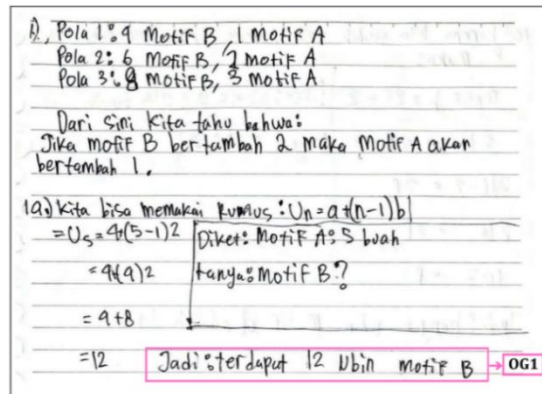 1), Pola 1: 4 Motif B, 1 Motif A
Pola 2: 6 Motif B, 2 motif A
Pola 3: 8 motif B, 3 motif A
Dari sini kita tahu bahwa:
Jika motif B bertambah 2 maka Motif A akan
bertambah 1.
1a.) Kita bisa memakai rumus: Un = a+(n-1)b
= U5 = 4+(5-1)2
Diket: Motif A: 5 buah
= 4+(4)2
tanya: Motif B?
= 4+8
= 12
Jadi: terdapat 12 Ubin motif B
OG1